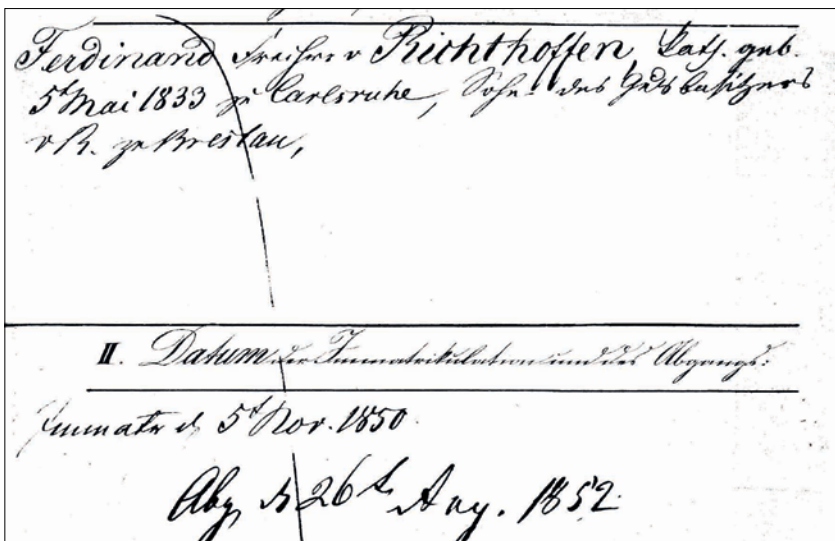 Ferdinand Freiherr v Richthoffen, kath. geb.
5t Mai 1833 zu Carlsruhe, Sohn des Gutsbesitzers
v R. zu Breslau,
II. Datum der Immatrikulation und des Abgangs:
Immatr d 5t Nov. 1850
Abg d 26t Aug. 1852